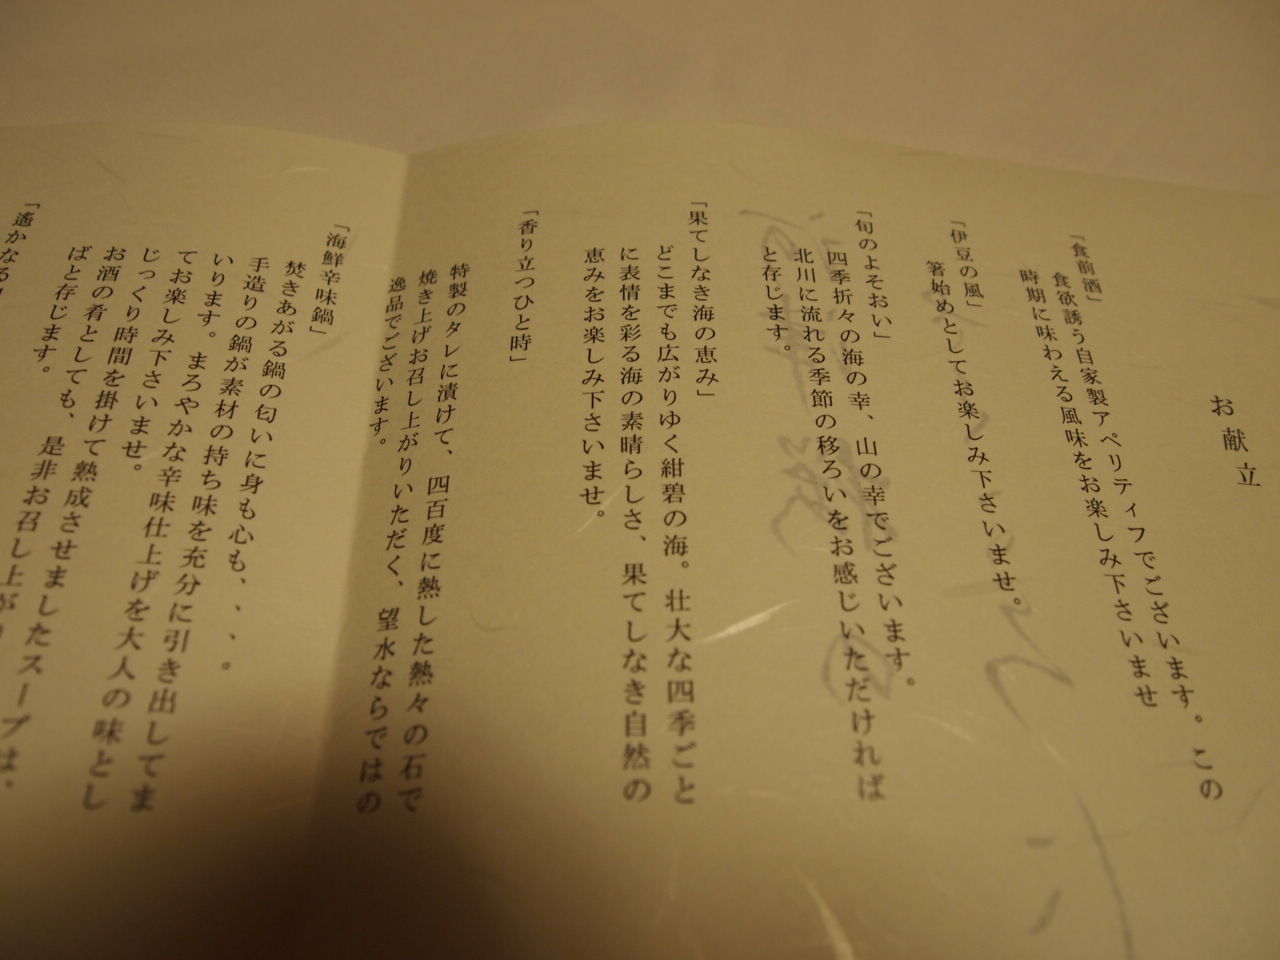 お献立
「食前酒」
食欲誘う自家製アペリティフでございます。この
時期に味わえる風味をお楽しみ下さいませ
「伊豆の風」
箸始めとしてお楽しみ下さいませ。
「旬のよそおい」
四季折々の海の幸、山の幸でございます。
北川に流れる季節の移ろいをお感じいただければ
と存じます。
「果てしなき海の恵み」
どこまでも広がりゆく紺碧の海。壮大な四季ごと
に表情を彩る海の素晴らしさ、果てしなき自然の
恵みをお楽しみ下さいませ。
「香り立つひと時」
特製のタレに漬けて、四百度に熱した熱々の石で
焼き上げお召し上がりいただく、望水ならではの
逸品でございます。
「海鮮辛味鍋」
焚きあがる鍋の匂いに身も心も、、、。
手造りの鍋が素材の持ち味を充分に引き出してま
いります。まろやかな辛味仕上げを大人の味とし
てお楽しみ下さいませ。
じっくり時間を掛けて熟成させましたスープは、
お酒の肴としても、是非お召し上がり
ばと存じます。
「遙かなる